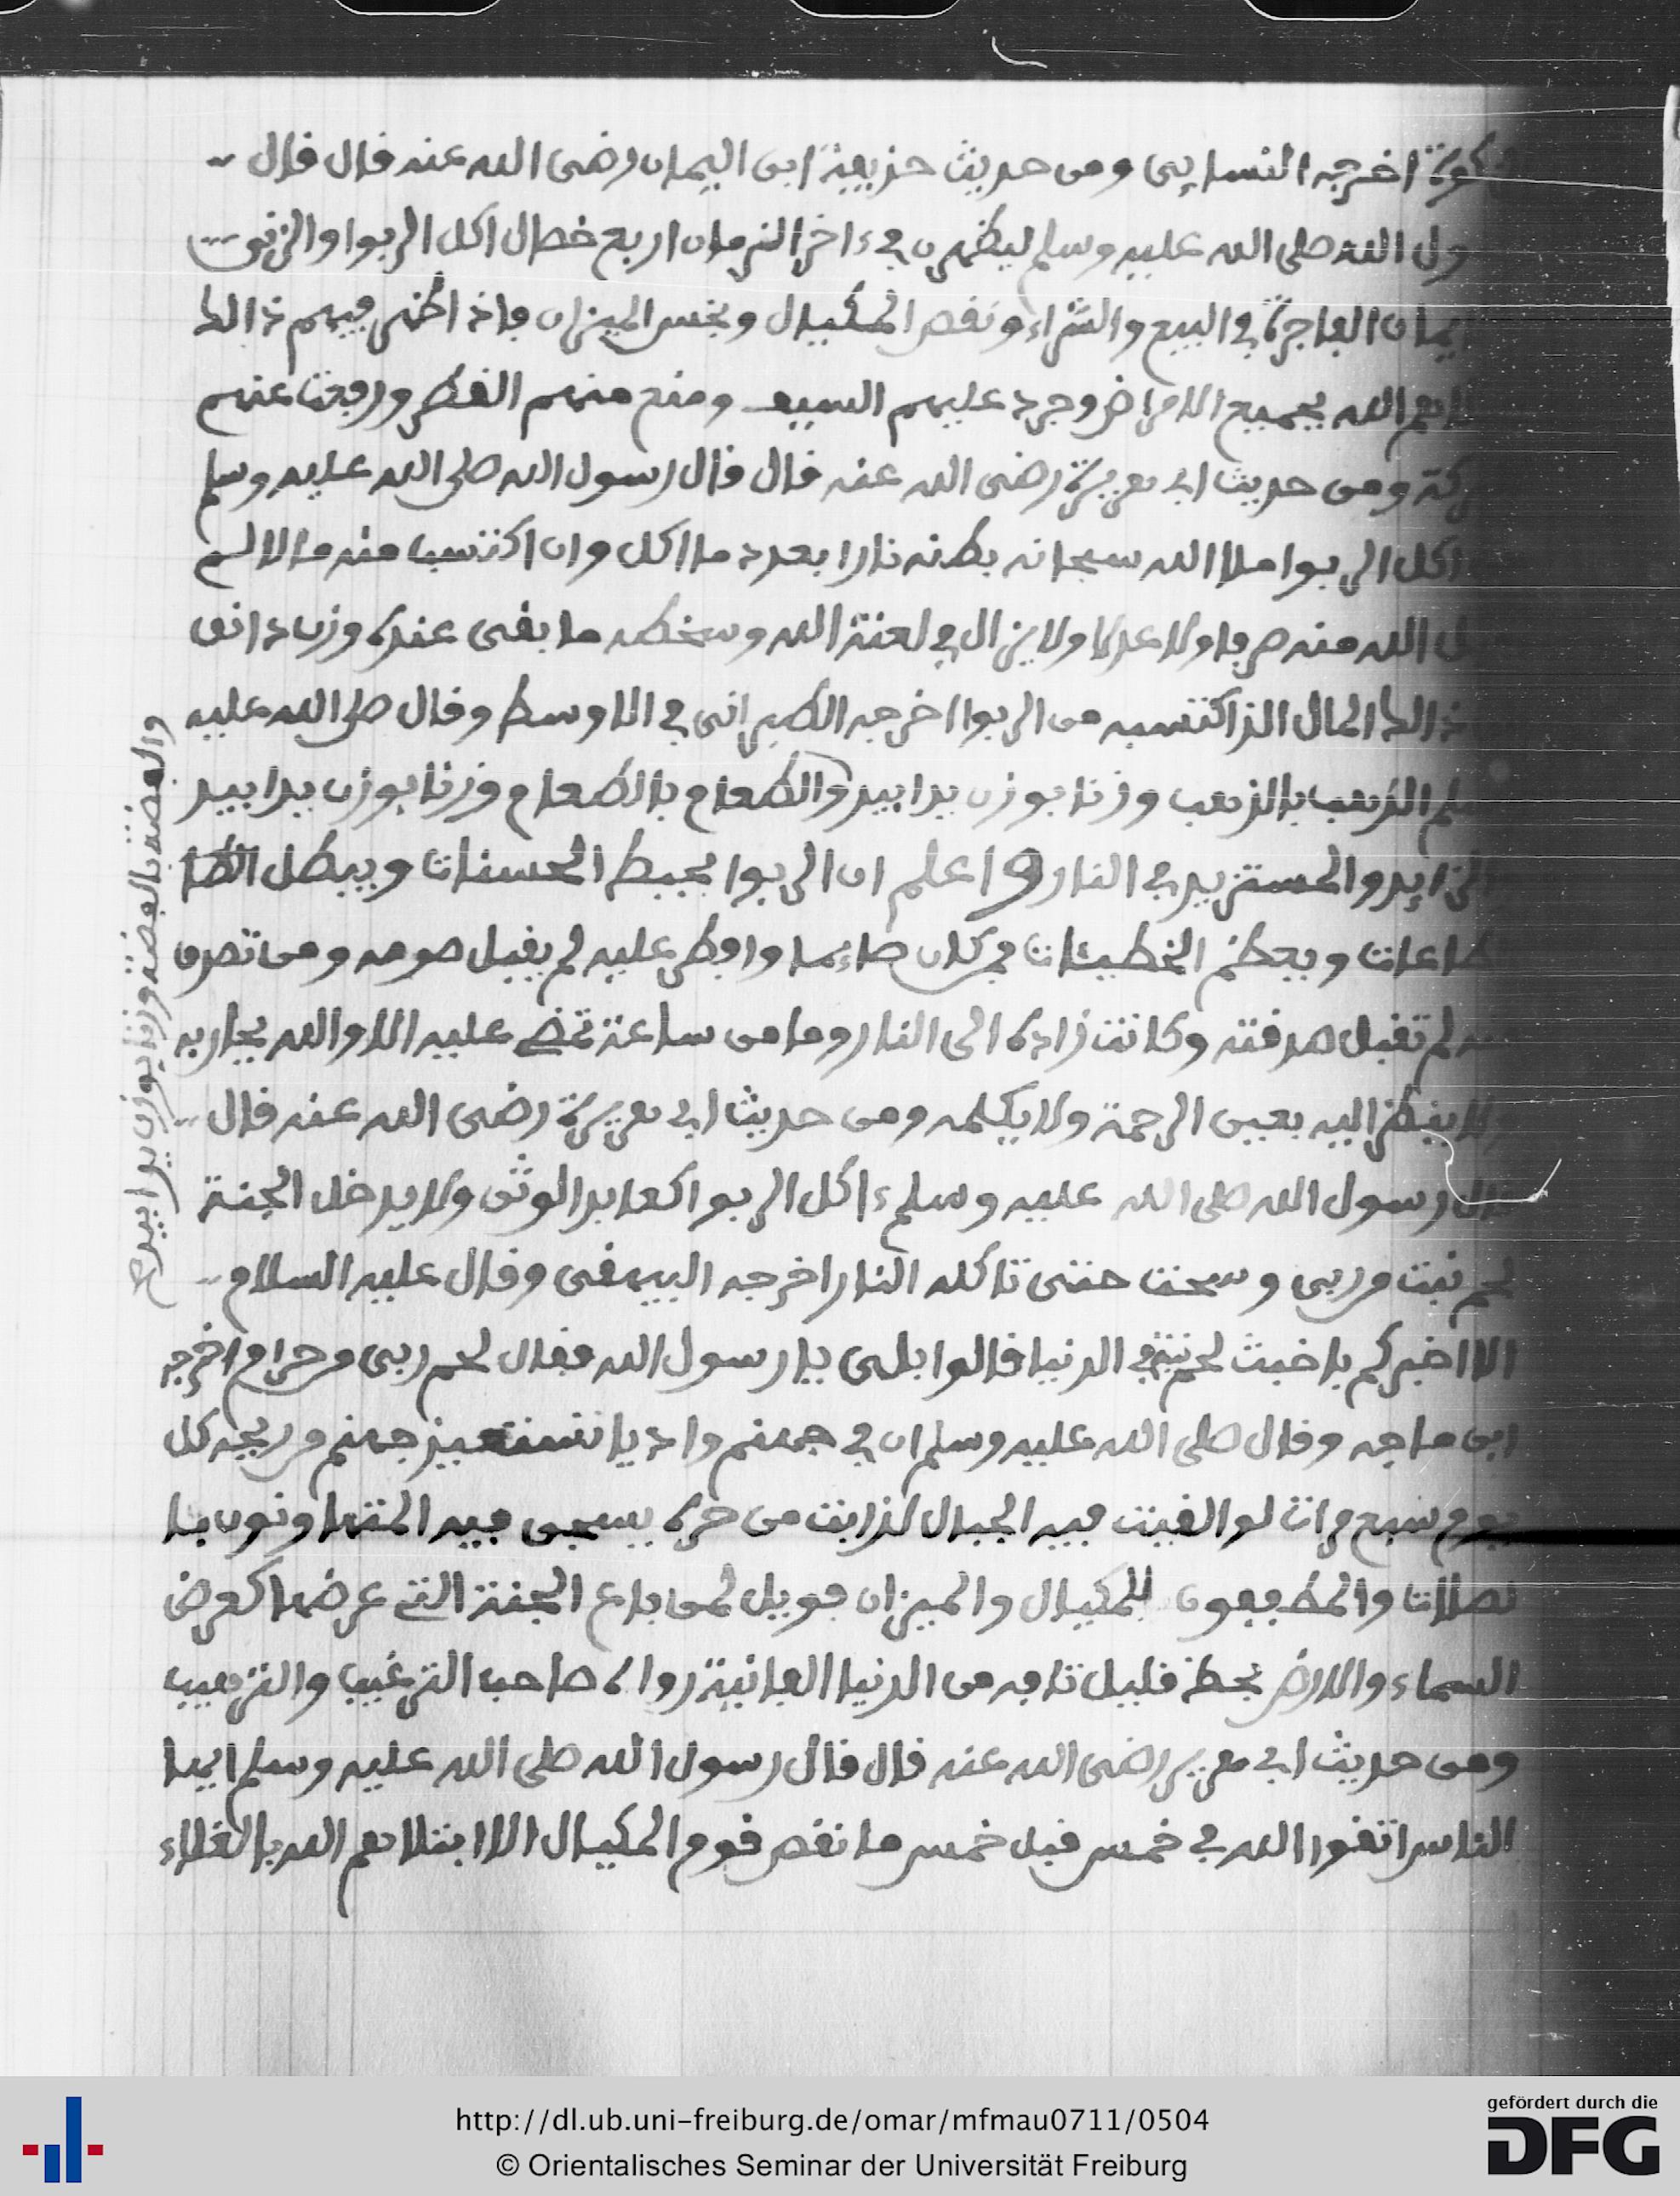 اخرجه النسايى ومن حديث حذيفة ابن اليمان رضى الله عنه قال قال
الله صلى الله عليه وسلم ليظهرن في ءاخر الزمان اربع خصال اكل الربوا والزنوى
الفاجرة في البيع والشراء ونقص المكيال وبخس الميزان فاذا ظهر فيهم ذالك
الله بجميع الامراض وجرد عليهم السيف ومنع منهم القطر ورفعت عنهم
ومن حديث ابى هريرة رضى الله عنه قال قال رسول الله صلى الله عليه وسلم
اكل الربوا ملا الله سبحانه بطنه نارا بعدد ما اكل وان اكتسب منه مالا لم
الله منه صرفا ولا عدلا ولا يزال في لعنة الله وسخطه ما بقى عنده وزيادة
ذالك المال الذ اكتسبه من الربوا اخرجه الطبرانى في الاوسط وقال صلى الله عليه
الذهب بالذهب وزنا بوزن يدا بيد والطعام بالطعام وزنا بوزن يدا بيد
والمستزيد في النار واعلم ان الربوا يحبط الحسنات ويبطل الطا
الطاعات ويعظم الخطيئات فمن كان صايما وافطر عليه لم يقبل صومه ومن تصدق
لم تقبل صدقته وكانت زاده الى النار وما من ساعة تمضى عليه الا والله يحاربه
ولا ينظر اليه بعين الرحمة ولا يكلمه ومن حديث ابى هريرة رضى الله عنه قال
قال رسول الله صلى الله عليه وسلم ءاكل الربوا كعابد الوثن ولا يدخل الجنة
لحم نبت من ربى وسحت حتى تاكله النار اخرجه البيهقى وقال عليه السلام
الا اخبركم باخبث لحم نبت في الدنيا قالوا بلى يا رسول الله فقال لحم ربى من حرام اخرجه
ابن ماجه وقال صلى الله عليه وسلم ان في جهنم واديا تستعيذ جهنم من ريحه كل
يوم سبع مرات لو القيت فيه الجبال لذابت من حره يسجن فيه المتهاونون با
لصلات والمطففون للمكيال والميزان فويل لمن باع الجنة التى عرضها كعرض
السماء والارض بحظ قليل تافه من الدنيا الفانية رواه صاحب الترغيب والترهيب
ومن حديث ابى هرير رضى الله عنه قال قال رسول الله صلى الله عليه وسلم ايها
الناس اتقوا الله في خمس قبل خمس ما نقص قوم المكيال الا ابتلاهم الله بالغلاء
والفضة بالفضة وزنا بوزن يدا بيد صح
http://dl.ub.uni-freiburg.de/omar/mfmau0711/0504
© Orientalisches Seminar der Universität Freiburg
gefördert durch die
DFG